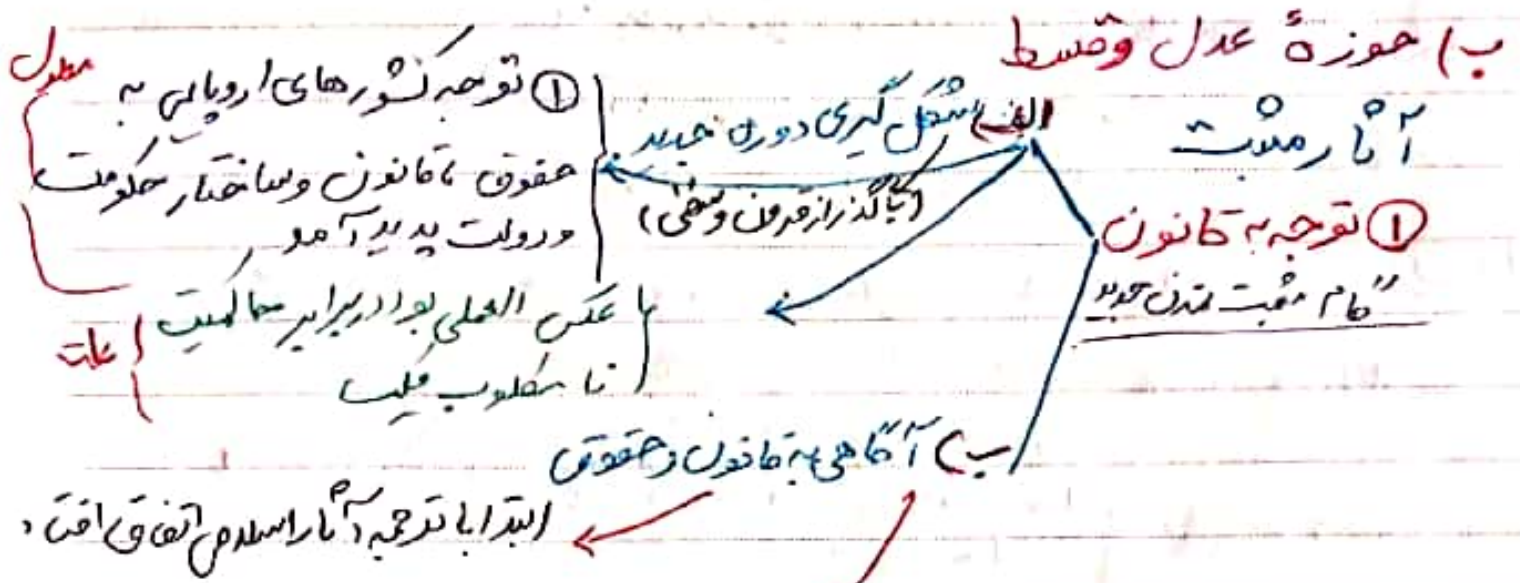 ب) حوزهٔ عدل و قسط
آثار مثبت
① توجه به قانون
گام مثبت تمدن جدید
الف) شکل گیری دوره جدید
(با گذر از قرون وسطی)
① توجه کشورهای اروپایی به
حقوق، قانون و ساختار حکومت
و دولت پدید آمد
معلول
عکس العملی بود در برابر حاکمیت
نا مطلوب کلیسا
علت
ب) آگاهی به قانون و حقوق
ابتدا با ترجمه آثار اسلامی اتفاق افتاد